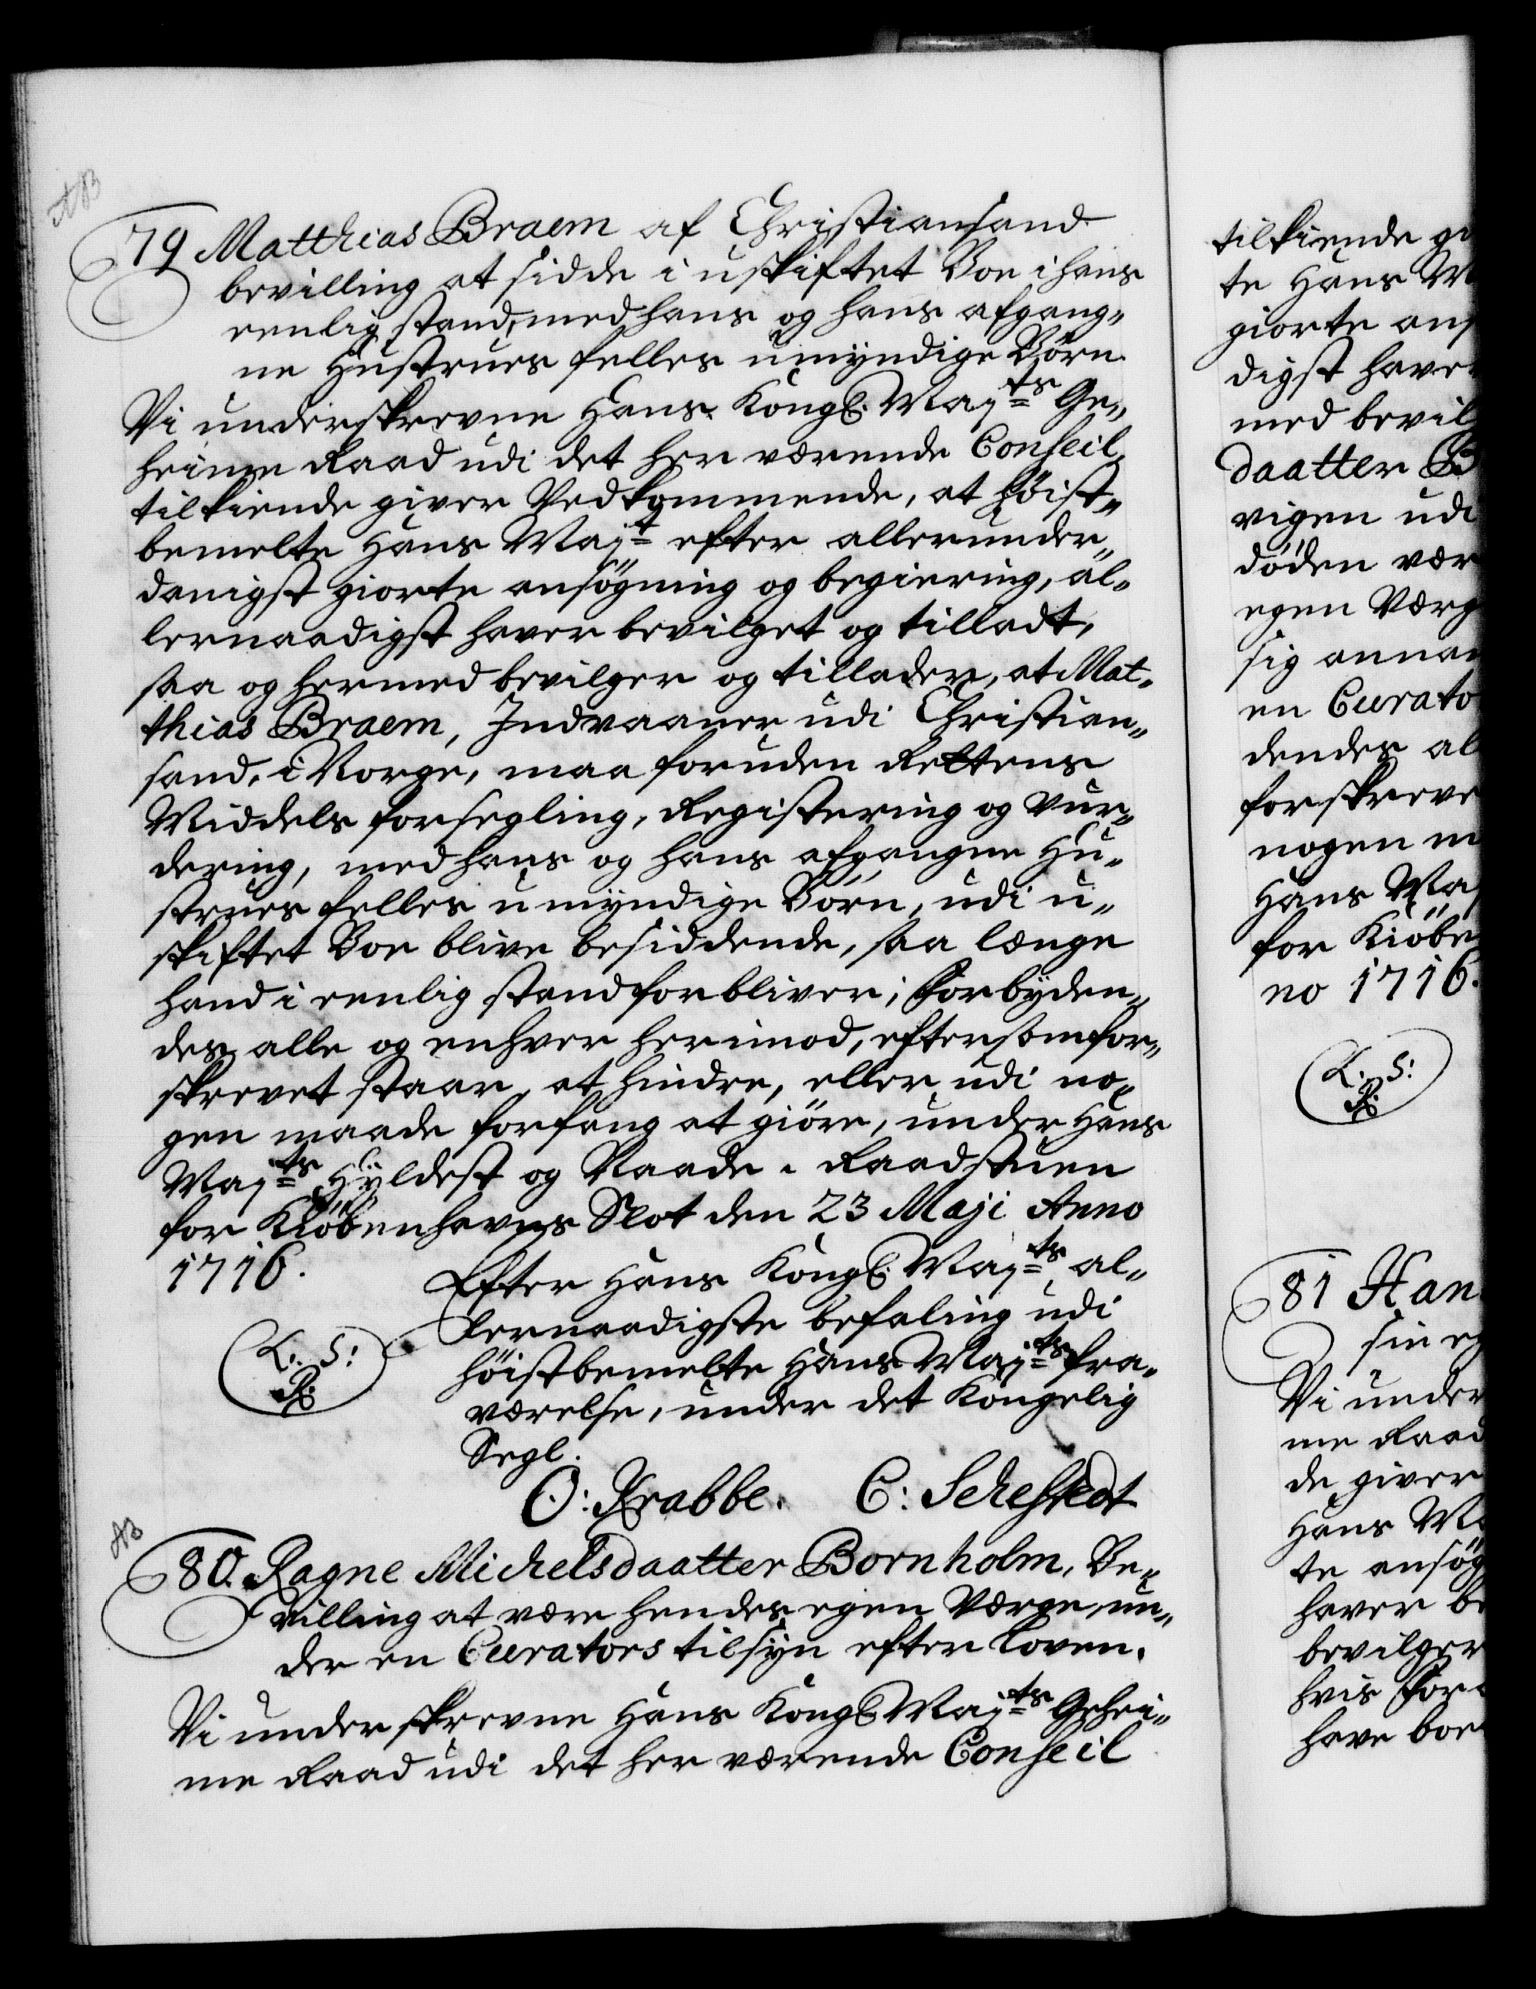 AB
79 Matthias Braem af Christiansand
bevilling at sidde i uskiftet Boe i hans
eenlig stand, med hans og hans afgang„
ne Hustrues felles umyndige Börn.
Vi underskrevne Hans Kongl. Maj:ts Ge„
heime Raad udi det her værende Conseil
tilkiende giver Vedkommende, at höist„
bemelte Hans Maj:t efter allerunder„
danigst giorte ansögning og begiering, al„
lernaadigst haver bevilget og tilladt,
saa og hermed bevilger og tillader, at Mat„
thias Braem, Indvaaner udi Christian„
sand, i Norge, maa foruden Rettens
Middels forsegling, Registering og Vur„
dering, med hans og hans afgangne Hu„
strues felles umyndige Börn, udi u„
skiftet Boe blive besiddende, saa længe
hand i eenlig stand forbliver; Forbyden„
des alle og enhver herimod, eftersom for„
skrevet staar, at hindre, eller udi no„
gen maade forfang at giöre, under Hans
Maj:ts Hyldest og Naade. Raadstuen
for Kiöbenhavns Slot den 23 Maji Anno
1716.
Efter Hans Kongl. Maj:ts al„
lernaadigste befaling udi
höistbemelte Hans Maj:ts fra„
værelse, under det Kongelig
Segl.
L: S:
R.
O: Krabbe. C: Sehestedt
AB
80. Ragne Michelsdaatter Bornholm, Be„
villing at være hendes egen Værge, un„
der en Curators tilsyn efter Loven.
Vi underskrevne Hans Kongl Maj:ts Gehei„
me Raad udi det her værende Conseil
tilkiende gi
te Hans M
giorte ans
digst haver
med bevil
daatter B
vigen udi
döden vær
egen Værg
sig annam
en Curato
dendes al
forskreve
nogen m
Hans Maj
for Kiöbe
no 1716.
L: S:
R.
81 Han
sin eg
Vi under
me Raad
de giver
Hans Ma
te ansög
haver be
bevilger
hvis For
have boe